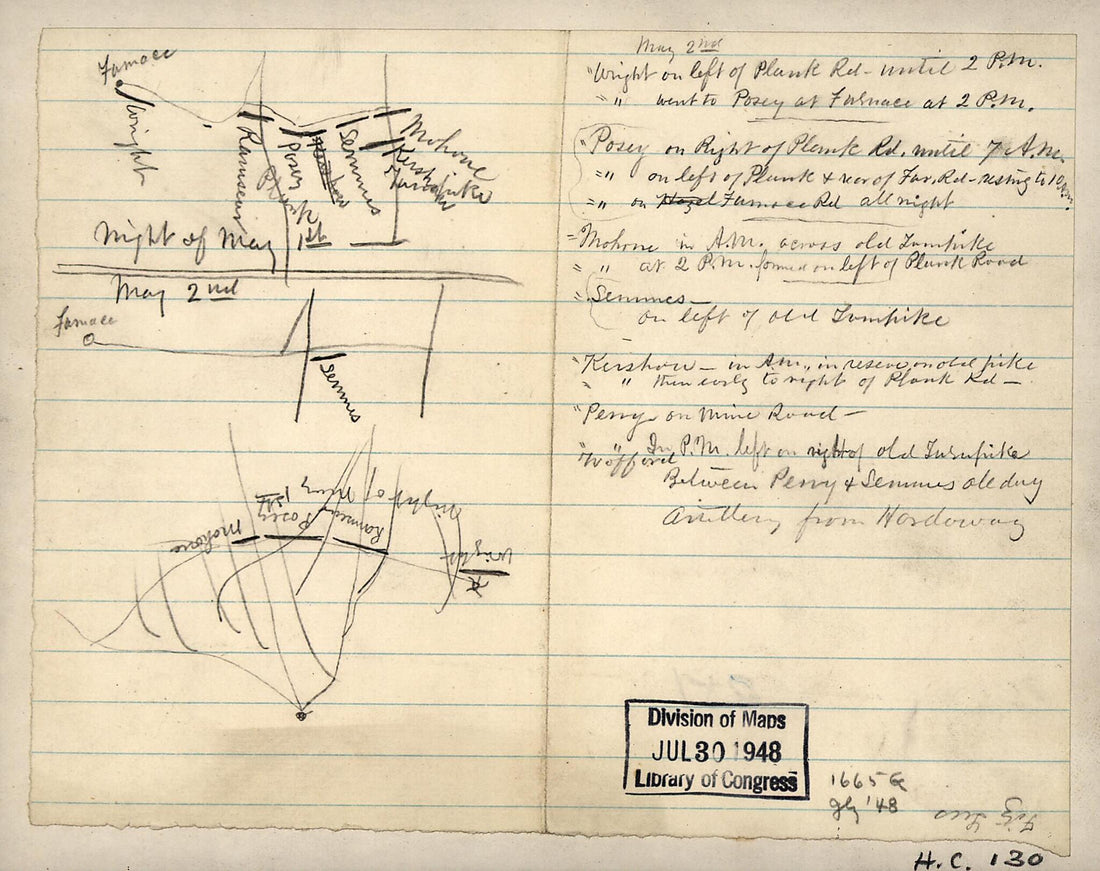 Furnace
Wright
Ramseur
Plank
Posey
Kershaw
Semmes
Mahone
Kershaw
Turnpike
Night of May 1st
May 2nd
Furnace
Semmes
Night of May 1st
Mahone
Posey
Ramseur
Wright
May 2nd
"Wright on left of Plank Rd - until 2 P.M.
" " went to Posey at Furnace at 2 P.M.
Posey on Right of Plank Rd. until 7 A.M.
" " on left of Plank & rear of Fur. Rd - resting to 10 A.M.
" " on Hazel Furnace Rd all night
"Mahone in A.M. across old Turnpike
" " at 2 P.M. formed on left of Plank Road
" Semmes -
on left of old Turnpike
"Kershaw - in A.M., in reserve on old pike
" " then early to right of Plank Rd -
"Perry on Mine Road -
"Wofford " In P.M. left on right of old Turnpike
Between Perry & Semmes all day
Artillery from Hardaway
Division of Maps
JUL 30 1948
Library of Congress
1665 G
'48
Fitz Lees
H.C. 130